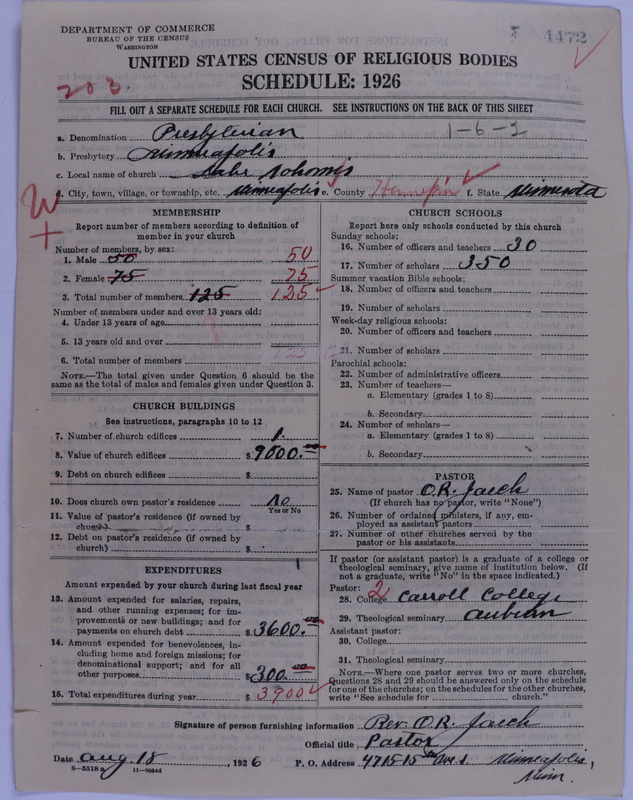 DEPARTMENT OF COMMERCE
BUREAU OF THE CENSUS
WASHINGTON
4472
UNITED STATES CENSUS OF RELIGIOUS BODIES
SCHEDULE: 1926
203
FILL OUT A SEPARATE SCHEDULE FOR EACH CHURCH. SEE INSTRUCTIONS ON THE BACK OF THIS SHEET
a. Denomination Presbyterian 1-6-2
b. Presbytery Minneapolis
c. Local name of church Lake Nokomis
d. City, town, village, or township, etc. Minneapolis e. County Hennepin f. State Minnesota
W
+
MEMBERSHIP
Report number of members according to definition of member in your church
Number of members, by sex:
1. Male 50 50
2. Female 75 75
3. Total number of members 125 125
Number of members under and over 13 years old:
4. Under 13 years of age
5. 13 years old and over
6. Total number of members
NOTE.—The total given under Question 6 should be the same as the total of males and females given under Question 3.
CHURCH BUILDINGS
See instructions, paragraphs 10 to 12
7. Number of church edifices 1.
8. Value of church edifices $ 9000.00
9. Debt on church edifices $
10. Does church own pastor's residence No
Yes or No
11. Value of pastor's residence (if owned by church) $
12. Debt on pastor's residence (if owned by church) $
EXPENDITURES
Amount expended by your church during last fiscal year
13. Amount expended for salaries, repairs, and other running expenses; for improvements or new buildings; and for payments on church debt $ 3600.00
14. Amount expended for benevolences, including home and foreign missions; for denominational support; and for all other purposes $ 300.00
15. Total expenditures during year $ 3900
CHURCH SCHOOLS
Report here only schools conducted by this church
Sunday schools:
16. Number of officers and teachers 30
17. Number of scholars 350
Summer vacation Bible schools:
18. Number of officers and teachers
19. Number of scholars
Week-day religious schools:
20. Number of officers and teachers
21. Number of scholars
Parochial schools:
22. Number of administrative officers
23. Number of teachers—
a. Elementary (grades 1 to 8)
b. Secondary
24. Number of scholars—
a. Elementary (grades 1 to 8)
b. Secondary
PASTOR
25. Name of pastor O.R.
(If church has no pastor, write "None")
26. Number of ordained ministers, if any, employed as assistant pastors
27. Number of other churches served by the pastor or his assistants
If pastor (or assistant pastor) is a graduate of a college or theological seminary, give name of institution below. (If not a graduate, write "No" in the space indicated.)
Pastor: 2
28. College Carroll College
29. Theological seminary Auburn
Assistant pastor:
30. College
31. Theological seminary
NOTE.—Where one pastor serves two or more churches, Questions 28 and 29 should be answered only on the schedule for one of the churches; on the schedules for the other churches, write "See schedule for church."
Signature of person furnishing information Rev. O.R.
Official title Pastor
Date Aug 18, 1926 P. O. Address 4715-15th Ave S. Minneapolis,
Minn.
8—5518a 11—9684d